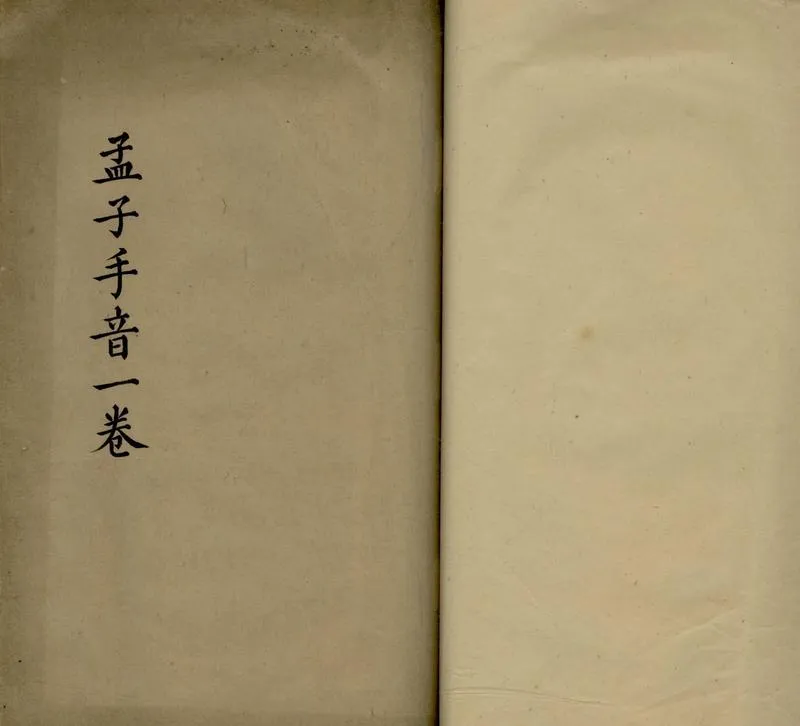 孟子手音一卷